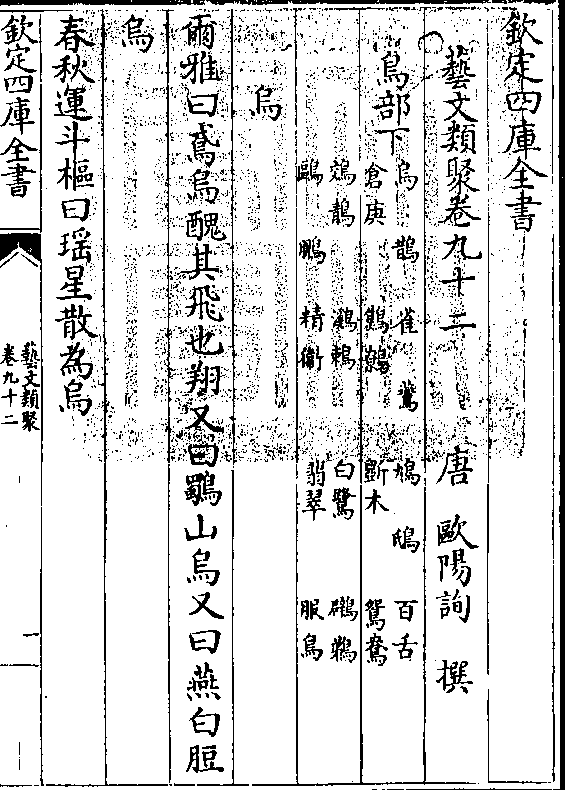 欽定四庫全書
藝文類聚卷九十二 唐 歐陽詢 撰
鳥部下
烏 鵲 雀 鷰 鳩 鴟 百舌
倉庚 鷦鷯 斵木 鴛鴦
鵁鶄 鸂鶒 白鷺 鸊鵜
鷗 鵬 精衛 翡翠 服鳥
烏
爾雅曰鳶烏醜其飛也翔又曰鸀山烏又曰燕白脰
烏
春秋運斗樞曰瑶星散為烏
欽定四庫全書
藝文類聚
卷九十二
一